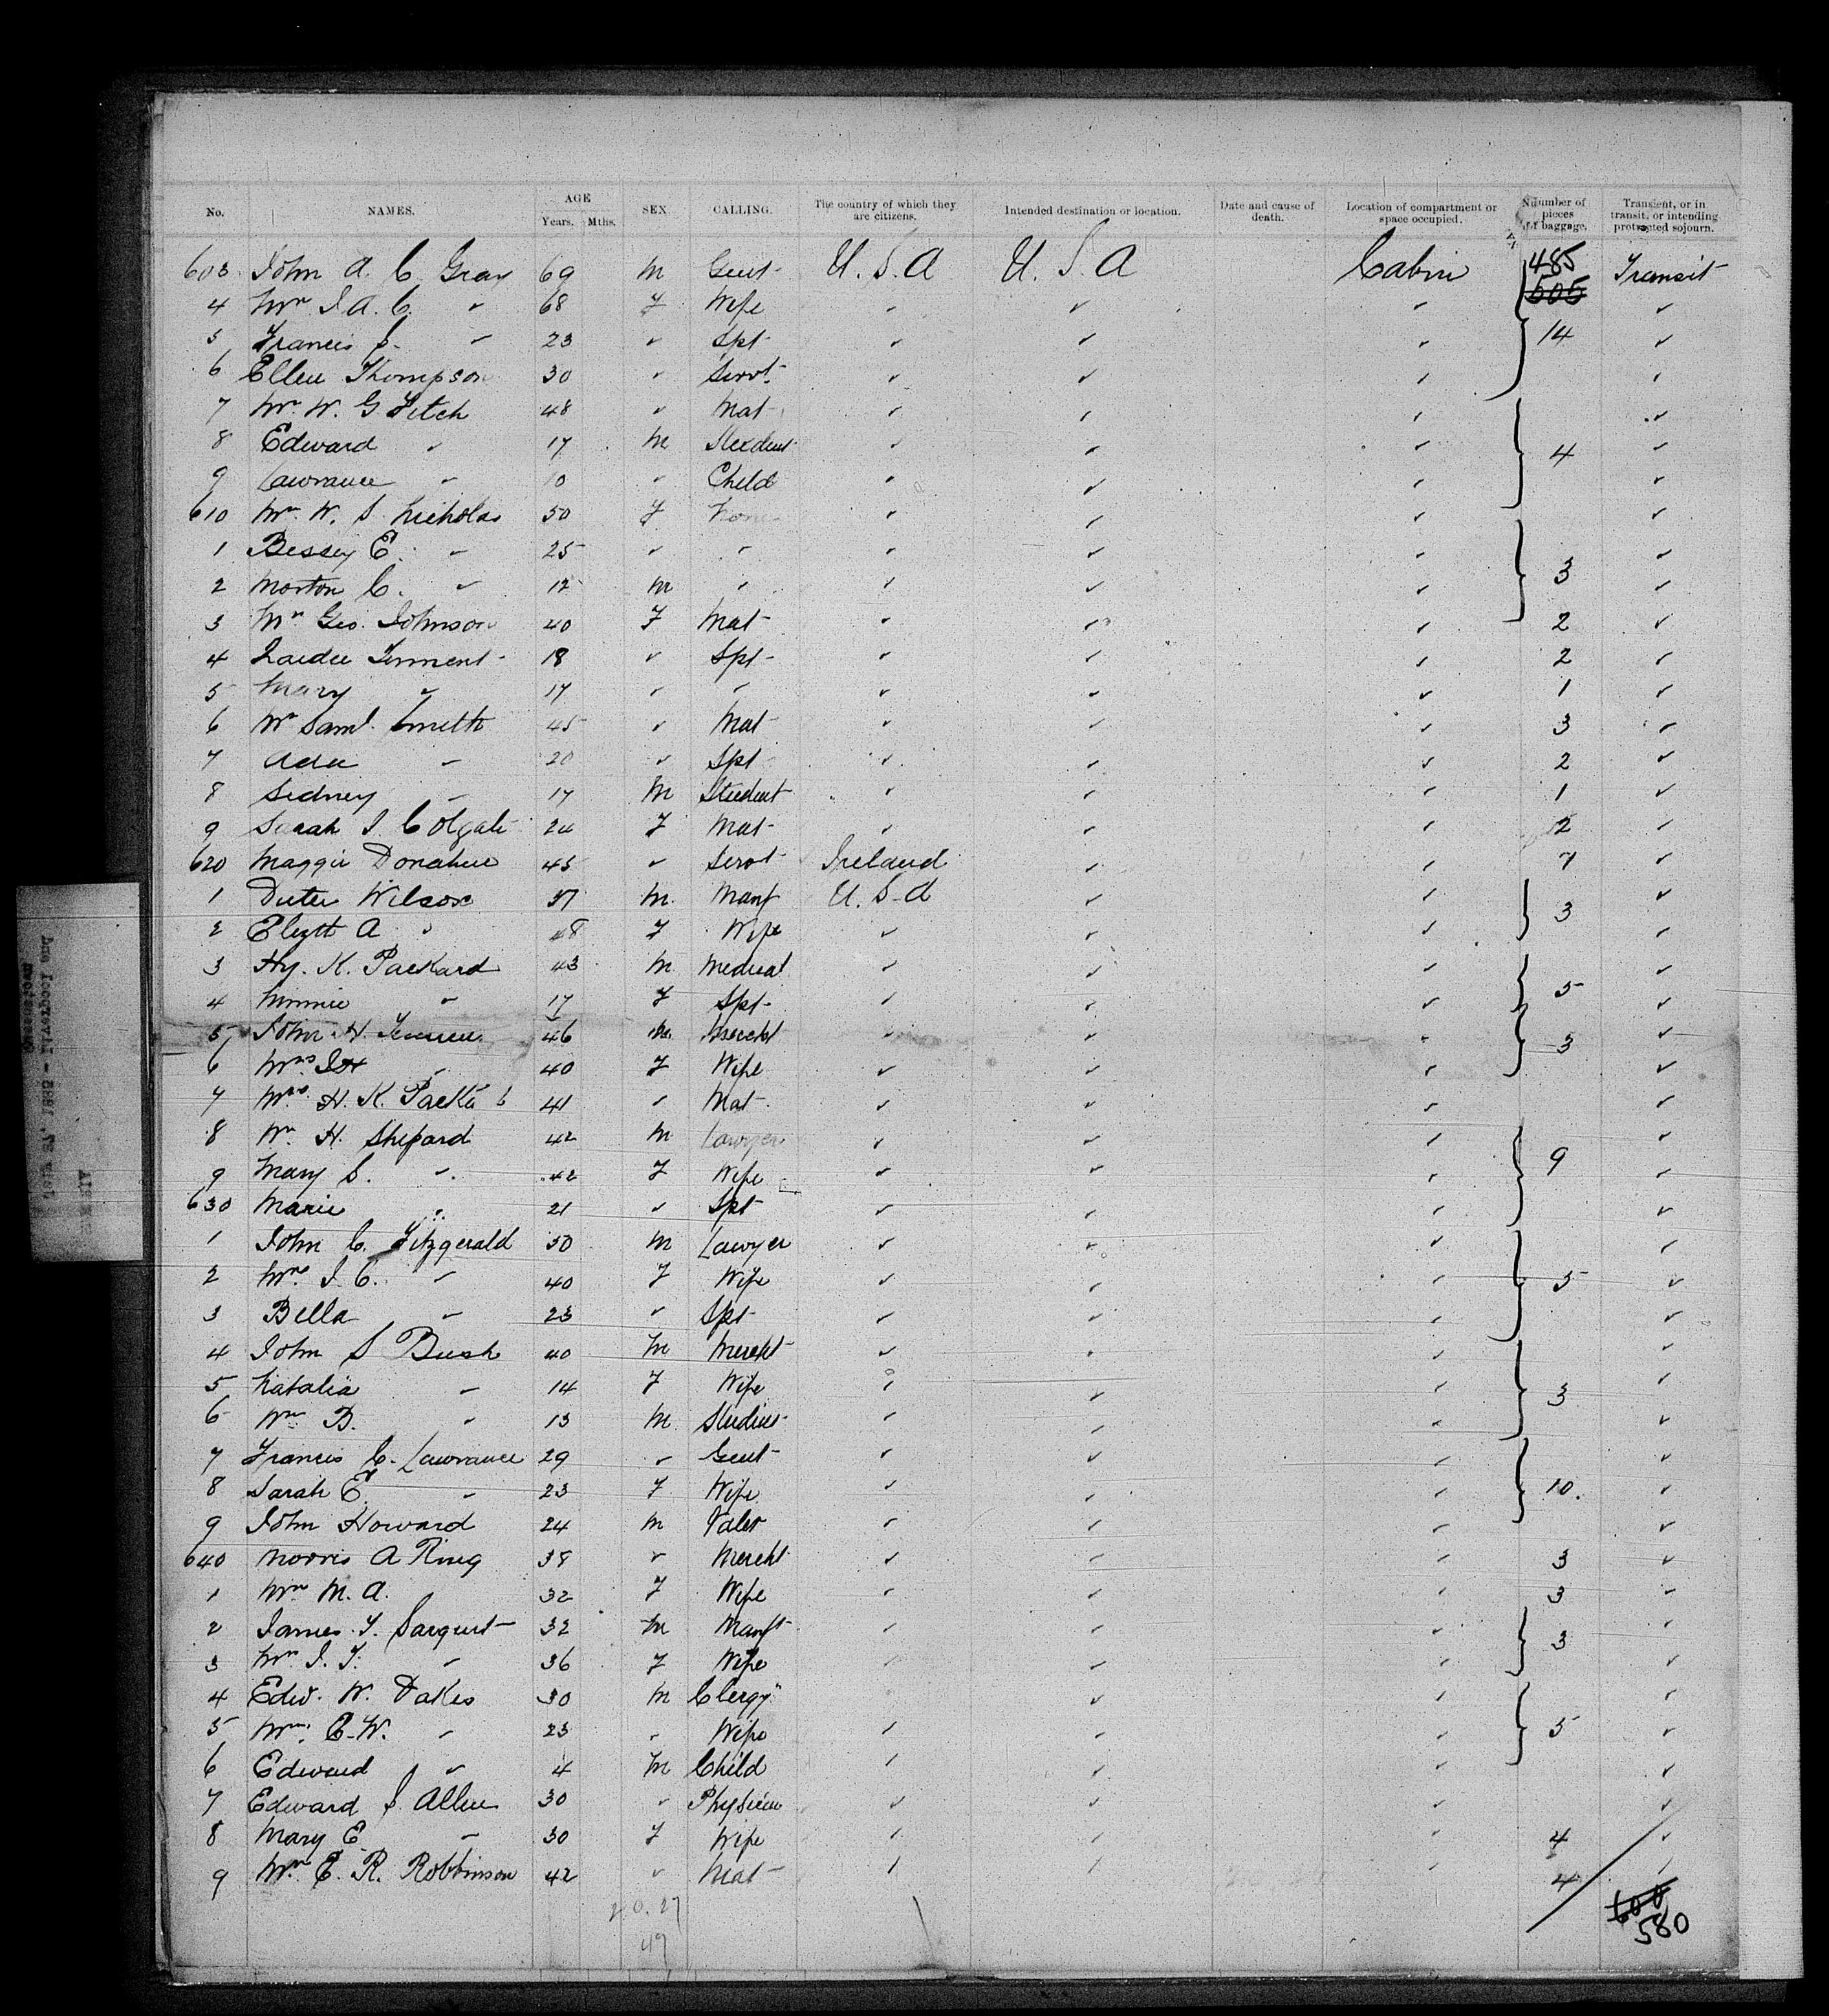 No. NAMES. AGE Years. Mths. SEX. CALLING. The country of which they are citizens. Intended destination or location. Date and cause of death. Location of compartment or space occupied. Number of pieces of baggage. Transient, or in transit, or intending protracted sojourn.
603 John A. C. Gray 69 M Gent U.S.A U.S.A Cabin 485 505 Transit
4 Mrs J. A. C. " 68 F Wife
5 Francis S. " 23 " Spt 14
6 Ellen Thompson 30 " Servt
7 Mrs W. G Fitch 48 " Mat
8 Edward " 17 M Student 4
9 Lawrance " 10 " Child
610 Mrs W. S. Nicholas 50 F None
1 Bessey E. " 25 " "
2 Morton C. " 12 M " 3
3 Mrs Geo. Johnson 40 F Mat 2
4 18 " Spt 2
5 Mary " 17 " " 1
6 Mrs Saml. Smith 45 " Mat 3
7 Ada " 20 " Spt 2
8 Sidney " 17 M Student 1
9 Sarah J. Colgate 24 F Mat 2
620 Maggie Donahue 45 " Servt Ireland 7
1 Wilson M. Manf U.S.A 3
2 Elizth A " 48 F Wife
3 Hy. K. Packard 43 M Medical
4 Minnie " 17 F Spt 5
5 John H. 46 M. Mercht
6 Mrs J H " 40 F Wife 3
7 Mrs. H. K. 41 " Mat
8 Wm H. Shepard 42 M Lawyer
9 Mary S. " 42 F Wife 9
630 Marie " 21 " Spt
1 John C. Fitzgerald 50 M Lawyer
2 Mrs. J. C. " 40 F Wife 5
3 Bella " 23 " Spt
4 John S Bush 40 M Mercht
5 Natalia " 14 F Wife 3
6 Wm B. " 13 M Student
7 Francis C. Lawrance 29 " Gent
8 Sarah E. " 23 F Wife 10.
9 John Howard 24 M Valet
640 Morris A Ring 38 " Mercht 3
1 Mrs M. A. 32 F Wife 3
2 James T. Sargent 32 M Manft 3
3 Mrs J. T. " 36 F Wife
4 Edw. W. Oakes 30 M Clergy"
5 Mrs. E. W. " 23 " Wife 5
6 Edward " 4 M Child
7 Edward S. Allen 30 " Physician
8 Mary E " 30 F Wife 4
9 Mrs E. R. Robbinson 42 " Mat 4
600
580
20.27
49